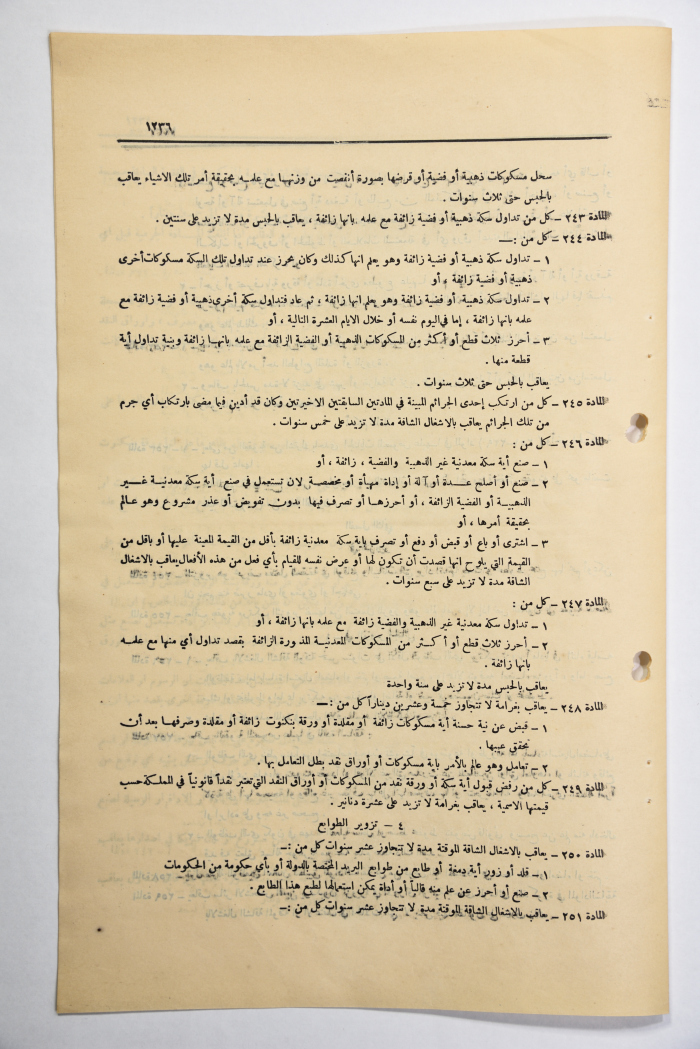 ١٢٣٦
سحل مسكوكات ذهبية أو فضية أو قرضها بصورة أنقصت من وزنها مع علمه بحقيقة أمر تلك الاشياء يعاقب
بالحبس حتى ثلاث سنوات .
المادة ٢٤٣ – كل من تداول سكة ذهبية أو فضية زائفة مع علمه بانها زائفة ، يعاقب بالحبس مدة لا تزيد على سنتين .
المادة ٢٤٤ – كل من : —
١ – تداول سكة ذهبية أو فضية زائفة وهو يعلم انها كذلك وكان يحرز عند تداول تلك السكة مسكوكات أخرى
ذهبية أو فضية زائفة ، أو
٢ – تداول سكة ذهبية أو فضية زائفة وهو يعلم انها زائفة ، ثم عاد فتداول سكة أخرى ذهبية أو فضية زائفة مع
علمه بانها زائفة ، إما في اليوم نفسه أو خلال الايام العشرة التالية ، أو
٣ – أحرز ثلاث قطع أو أكثر من المسكوكات الذهبية أو الفضية الزائفة مع علمه بانها زائفة وبنية تداول أية
قطعة منها .
يعاقب بالحبس حتى ثلاث سنوات .
المادة ٢٤٥ – كل من ارتكب إحدى الجرائم المبينة في المادتين السابقتين الاخيرتين وكان قد أدين فيما مضى بارتكاب أي جرم
من تلك الجرائم يعاقب بالاشغال الشاقة مدة لا تزيد على خمس سنوات .
المادة ٢٤٦ – كل من :
١ – صنع أية سكة معدنية غير الذهبية والفضية ، زائفة ، أو
٢ – صنع أو أصلح عدة أو آلة أو إداة مهيأة أو مخصصة لان تستعمل في صنع أية سكة معدنية غير
الذهبية أو الفضية الزائفة ، أو أحرزها أو تصرف فيها بدون تفويض أو عذر مشروع وهو عالم
بحقيقة أمرها ، أو
٣ – اشترى أو باع أو قبض أو دفع أو تصرف باية سكة معدنية زائفة بأقل من القيمة المعينة عليها أو باقل من
القيمة التي يلوح انها قصدت أن تكون لها أو عرض نفسه للقيام بأي فعل من هذه الأفعال يعاقب بالاشغال
الشاقة مدة لا تزيد على سبع سنوات .
المادة ٢٤٧ – كل من :
١ – تداول سكة معدنية غير الذهبية والفضية زائفة مع علمه بانها زائفة ، أو
٢ – أحرز ثلاث قطع أو أكثر من المسكوكات المعدنية المذ ورة الزائفة بقصد تداول أي منها مع علمه
بانها زائفة .
يعاقب بالحبس مدة لا تزيد على سنة واحدة
المادة ٢٤٨ – يعاقب بغرامة لا تتجاوز خمسة وعشرين ديناراً كل من : —
١ – قبض عن نية حسنة أية مسكوكات زائفة أو مقلدة أو ورقة بنكنوت زائفة أو مقلدة وصرفها بعد أن
تحقق عيبها .
٢ – تعامل وهو عالم بالأمر باية مسكوكات أو أوراق نقد بطل التعامل بها .
المادة ٢٤٩ – كل من رفض قبول أية سكة أو ورقة نقد من المسكوكات أو أوراق النقد التي تعتبر نقداً قانونياً في المملكة حسب
قيمتها الاسمية ، يعاقب بغرامة لا تزيد على عشرة دنانير .
٤ – تزوير الطوابع
المادة ٢٥٠ – يعاقب بالاشغال الشاقة المؤقتة مدة لا تتجاوز عشر سنوات كل من : –
١ – قلد أو زور أية دمغة أو طابع من طوابع البريد المختصة بالدولة أو بأي حكومة من الحكومات
٢ – صنع أو أحرز عن علم منه قالباً أو أداة يمكن استعمالها لطبع هذا الطابع .
المادة ٢٥١ – يعاقب بالاشغال الشاقة المؤقتة مدة لا تتجاوز عشر سنوات كل من : –